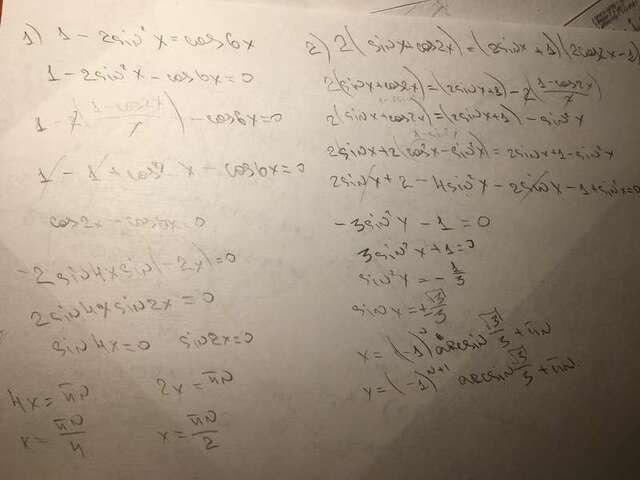 1) 1 - 2sin²x = cos6x
1 - 2sin²x - cos6x = 0
1 - 2(1-cos2x/2) - cos6x = 0
1 - 1 + cos² x - cos6x = 0
cos2x - cos6x = 0
-2sin4x sin(-2x) = 0
2sin4x sin2x = 0
sin4x = 0 sin2x = 0
4x = πn 2x = πn
x = πn/4 x = πn/2
2) 2(sinx + cos2x) = (2sinx + 1)(2cos2x - 1)
2(sinx + cos2x) = (2sinx + 1) - 2(1-cos2x/2)
2(sinx + cos2x) = (2sinx + 1) - sin²x
1-sin²x
2sinx + 2(cos²x - sin²x) = 2sinx + 1 - sin²x
2sinx + 2 - 4sin²x - 2sinx - 1 + sin²x = 0
-3sin²x - 1 = 0
3sin²x + 1 = 0
sin²x = -1/3
sinx = ±√3/3
x = (-1)ⁿ arcsin √3/3 + πn
x = (-1)ⁿ⁺¹ arcsin √3/3 + πn